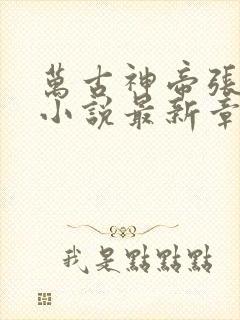 萬古神帝張
小說最新章
我是點點點